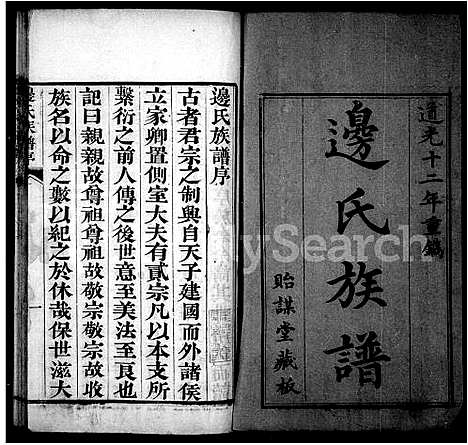 道光十二年重鐫
邊氏族譜
貽謀堂藏板
邊氏族譜序
古者君宗之制興自天子建國而外諸侯
立家卿置側室大夫有貳宗凡以本支所
繫衍之前人傳之後世意至美法至良也
記曰親親故尊祖尊祖故敬宗敬宗故收
族名以命之數以紀之於休哉保世滋大
邊氏族譜序
一